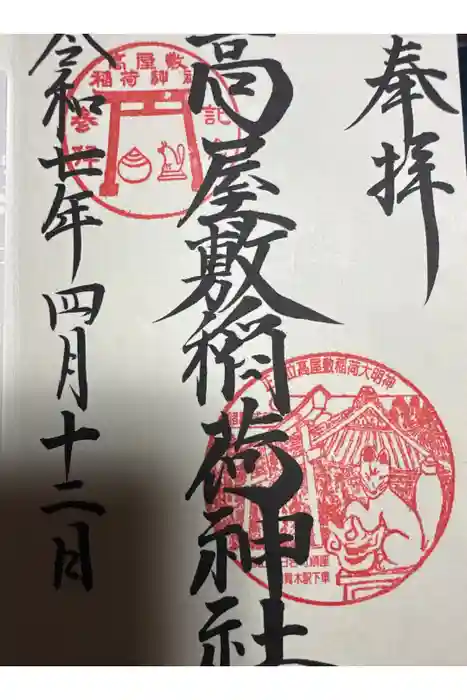 奉拝
高屋敷稲荷神社
令和七年四月十二日
高屋敷
稲荷神社
参拝
記念
正一位高屋敷稲荷大明神